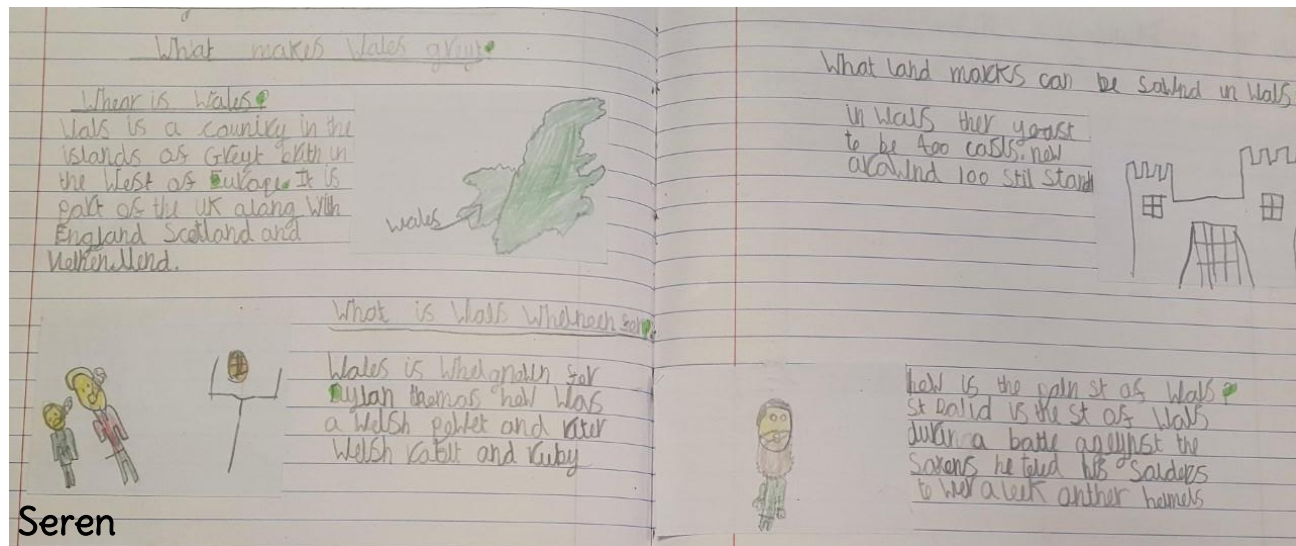 What makes Wales greyt.
Whear is Wales?
Wals is a country in the
islands of Greyt brith in
the West of Europe. It is
part of the UK along with
England Scotland and
wales
What is Wals
Wales is for
Dylan themas how was
a Welsh and riter
Welsh and ruby
What land marks can be in Wals
in Wals ther yoost
to be 400 casls. now
arawnd 100 stil stand
how is the st of Wals?
St David is the st of Wals
durin a battle ageynst the
Saxens he toled his
to wer a leek
Seren